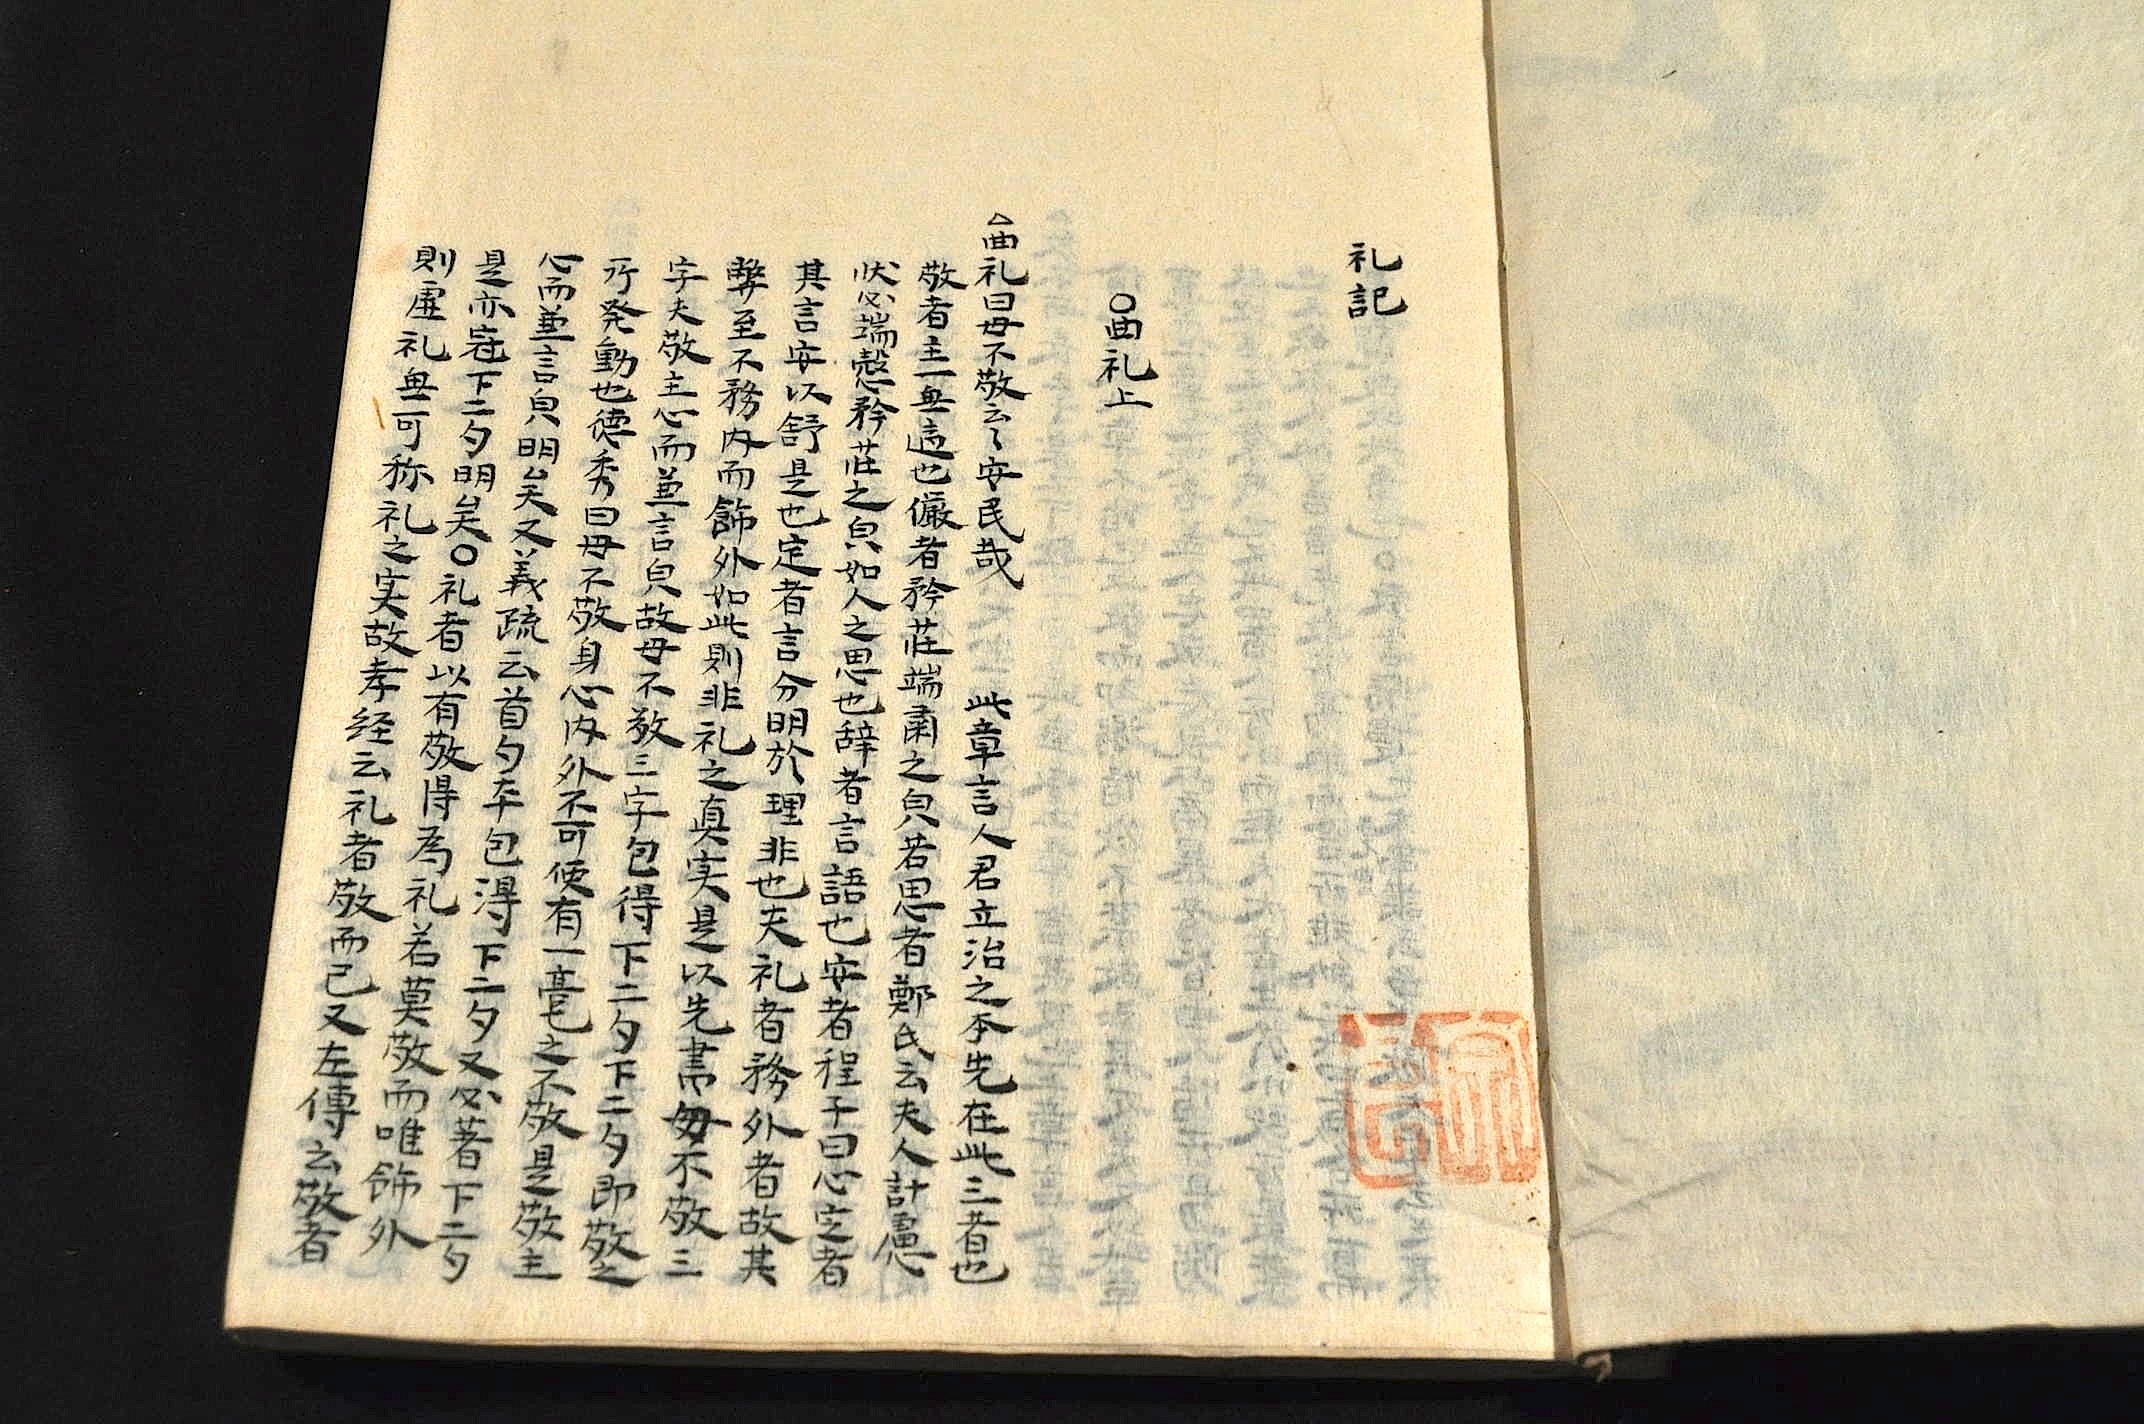 礼記
○曲礼上
△曲礼曰毋不敬云々安民哉 此章言人君立治之本先在此三者也
敬者主一無適也儼者矜莊端粛之皃若思者鄭氏云夫人計慮
状必端愨矜莊之皃如人之思也辞者言語也安者程子曰心定者
其言安以舒是也定者言分明於理非也夫礼者務外者故其
弊至不務内而飾外如此則非礼之真実是以先書毋不敬三
字夫敬主心而並言皃故毋不敬三字包得下二句下二句即敬之
所発動也徳秀曰毋不敬身心内外不可使有一毫之不敬是敬主
心而並言皃明矣又義疏云首句卒包得下二句又必著下二句
是亦冠下二句明矣○礼者以有敬得為礼若莫敬而唯飾外
則虚礼無可称礼之実故孝経云礼者敬而已又左傳云敬者